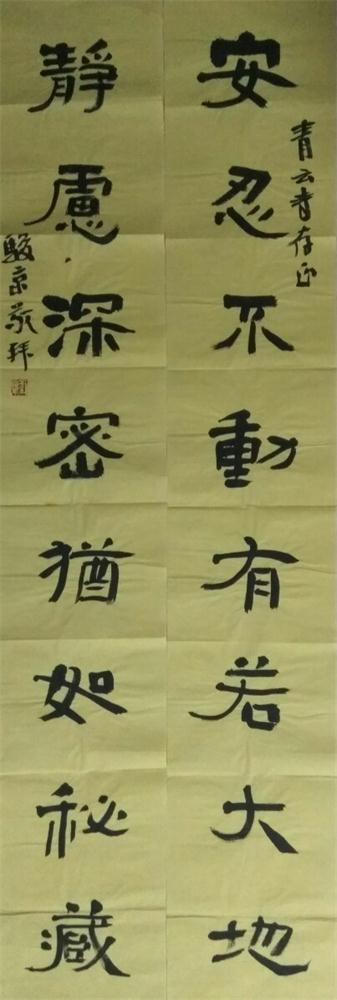 青云者存正
安忍不動有若大地
靜慮深密猶如秘藏
駿京敬拜